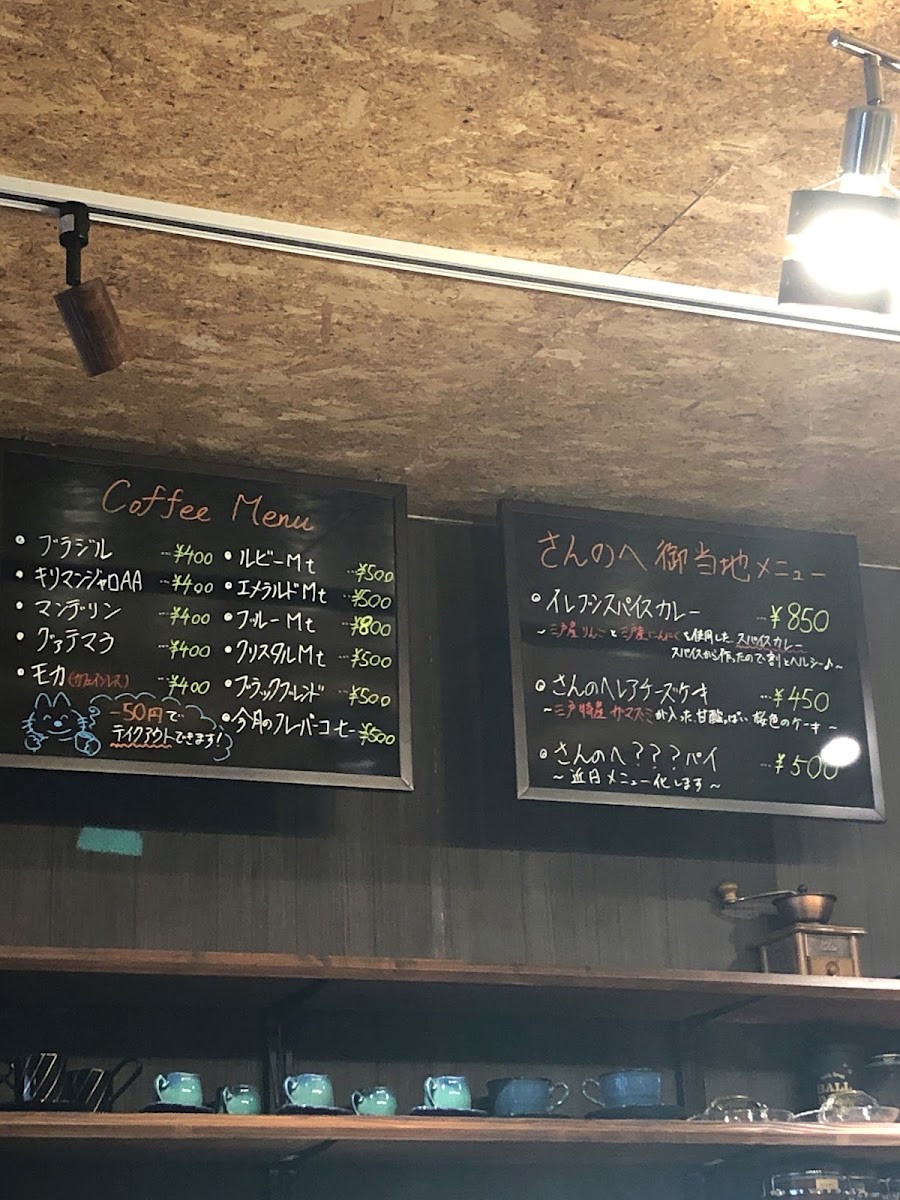 Coffee Menu
・ブラジル …¥400
・キリマンジャロAA …¥400
・マンデリン …¥400
・グァテマラ …¥400
・モカ(カフェインレス) …¥400
-50円で
テイクアウトできます!
・ルビーMt …¥500
・エメラルドMt …¥500
・ブルーMt …¥800
・クリスタルMt …¥500
・ブラックブレンド …¥500
・今月のフレーバーコーヒー …¥500
さんのへ御当地メニュー
・イレブンスパイスカレー …¥850
~三戸産りんごと三戸産にんにくを使用した、スパイスカレー
スパイスから作ったので、割とヘルシー♪~
・さんのへレアチーズケキ …¥450
~三戸特産カマズミが入った甘酸っぱい桜色のケーキ~
・さんのへ???パイ …¥500
~近日メニュー化します~